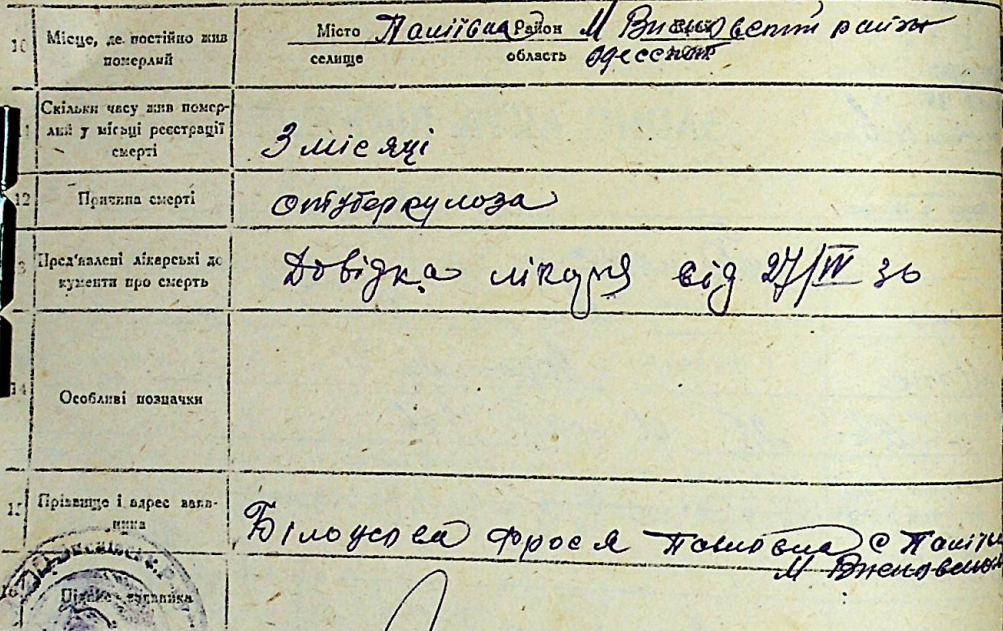 10 Місце, де постійно жив померлий
Місто Паліївка Район М Висковский район
селище область Одесской
Скільки часу жив помер-
лий у місьці реєстрації
смерті
3 місяці
12 Причина смерті
от туберкулоза
Пред'явлені лікарські до
кументи про смерть
Довідка лікаря від 27/IV 36
14 Особливі позначки
15 Прізвище і адрес заяв-
ника
Білоусова Фрося Павловна с
Підпис заявника